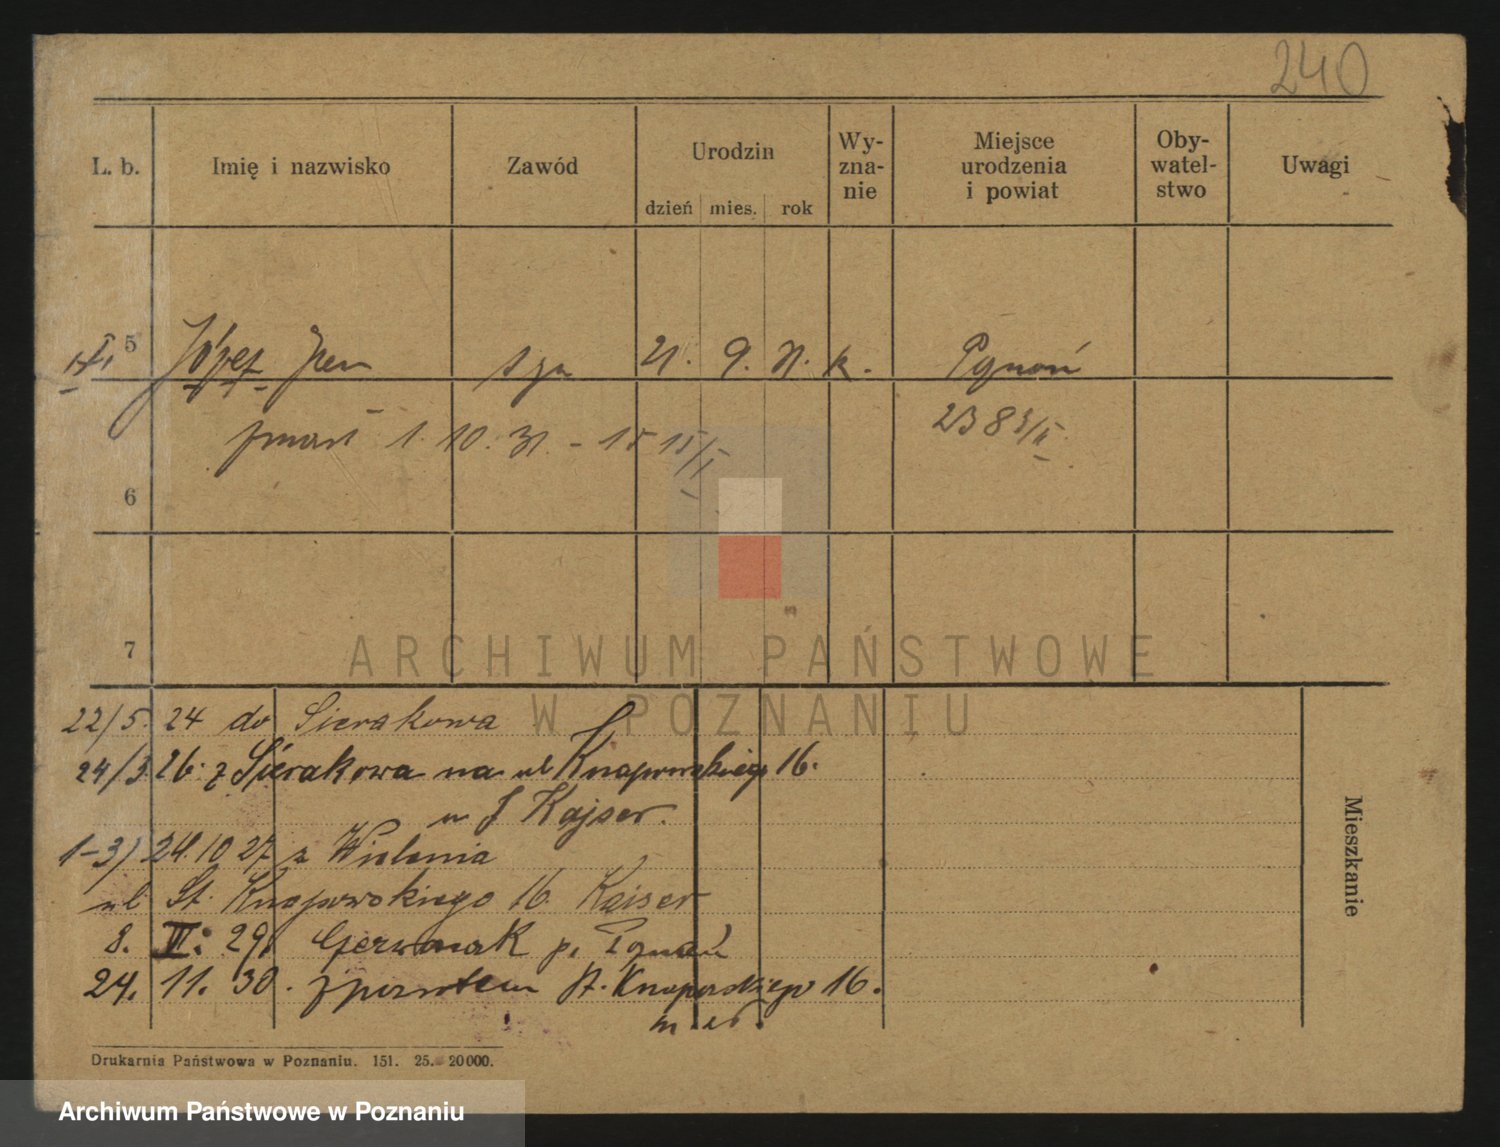 240
L. b.
Imię i nazwisko
Zawód
Urodzin
dzień mies. rok
Wy-
zna-
nie
Miejsce
urodzenia
i powiat
Oby-
watel-
stwo
Uwagi
5 Józef syn 21. 9. 31. k. Poznań
zmarł 1. 10. 31 - 15
6
7
ARCHIWUM PAŃSTWOWE
W POZNANIU
22/5. 24 do Sierakowa
24/3 26. z Sierakowa na ul Knapowskiego 16.
u J Kajser.
1-3) 24. 10 27 z Wielenia
ul St. Knapowskiego 16. Kaiser
8. VI. 29. p. Poznań
24. 11. 30. z powrotem St. Knapowskiego 16.
Mieszkanie
Drukarnia Państwowa w Poznaniu. 151. 25. 20000.
Archiwum Państwowe w Poznaniu